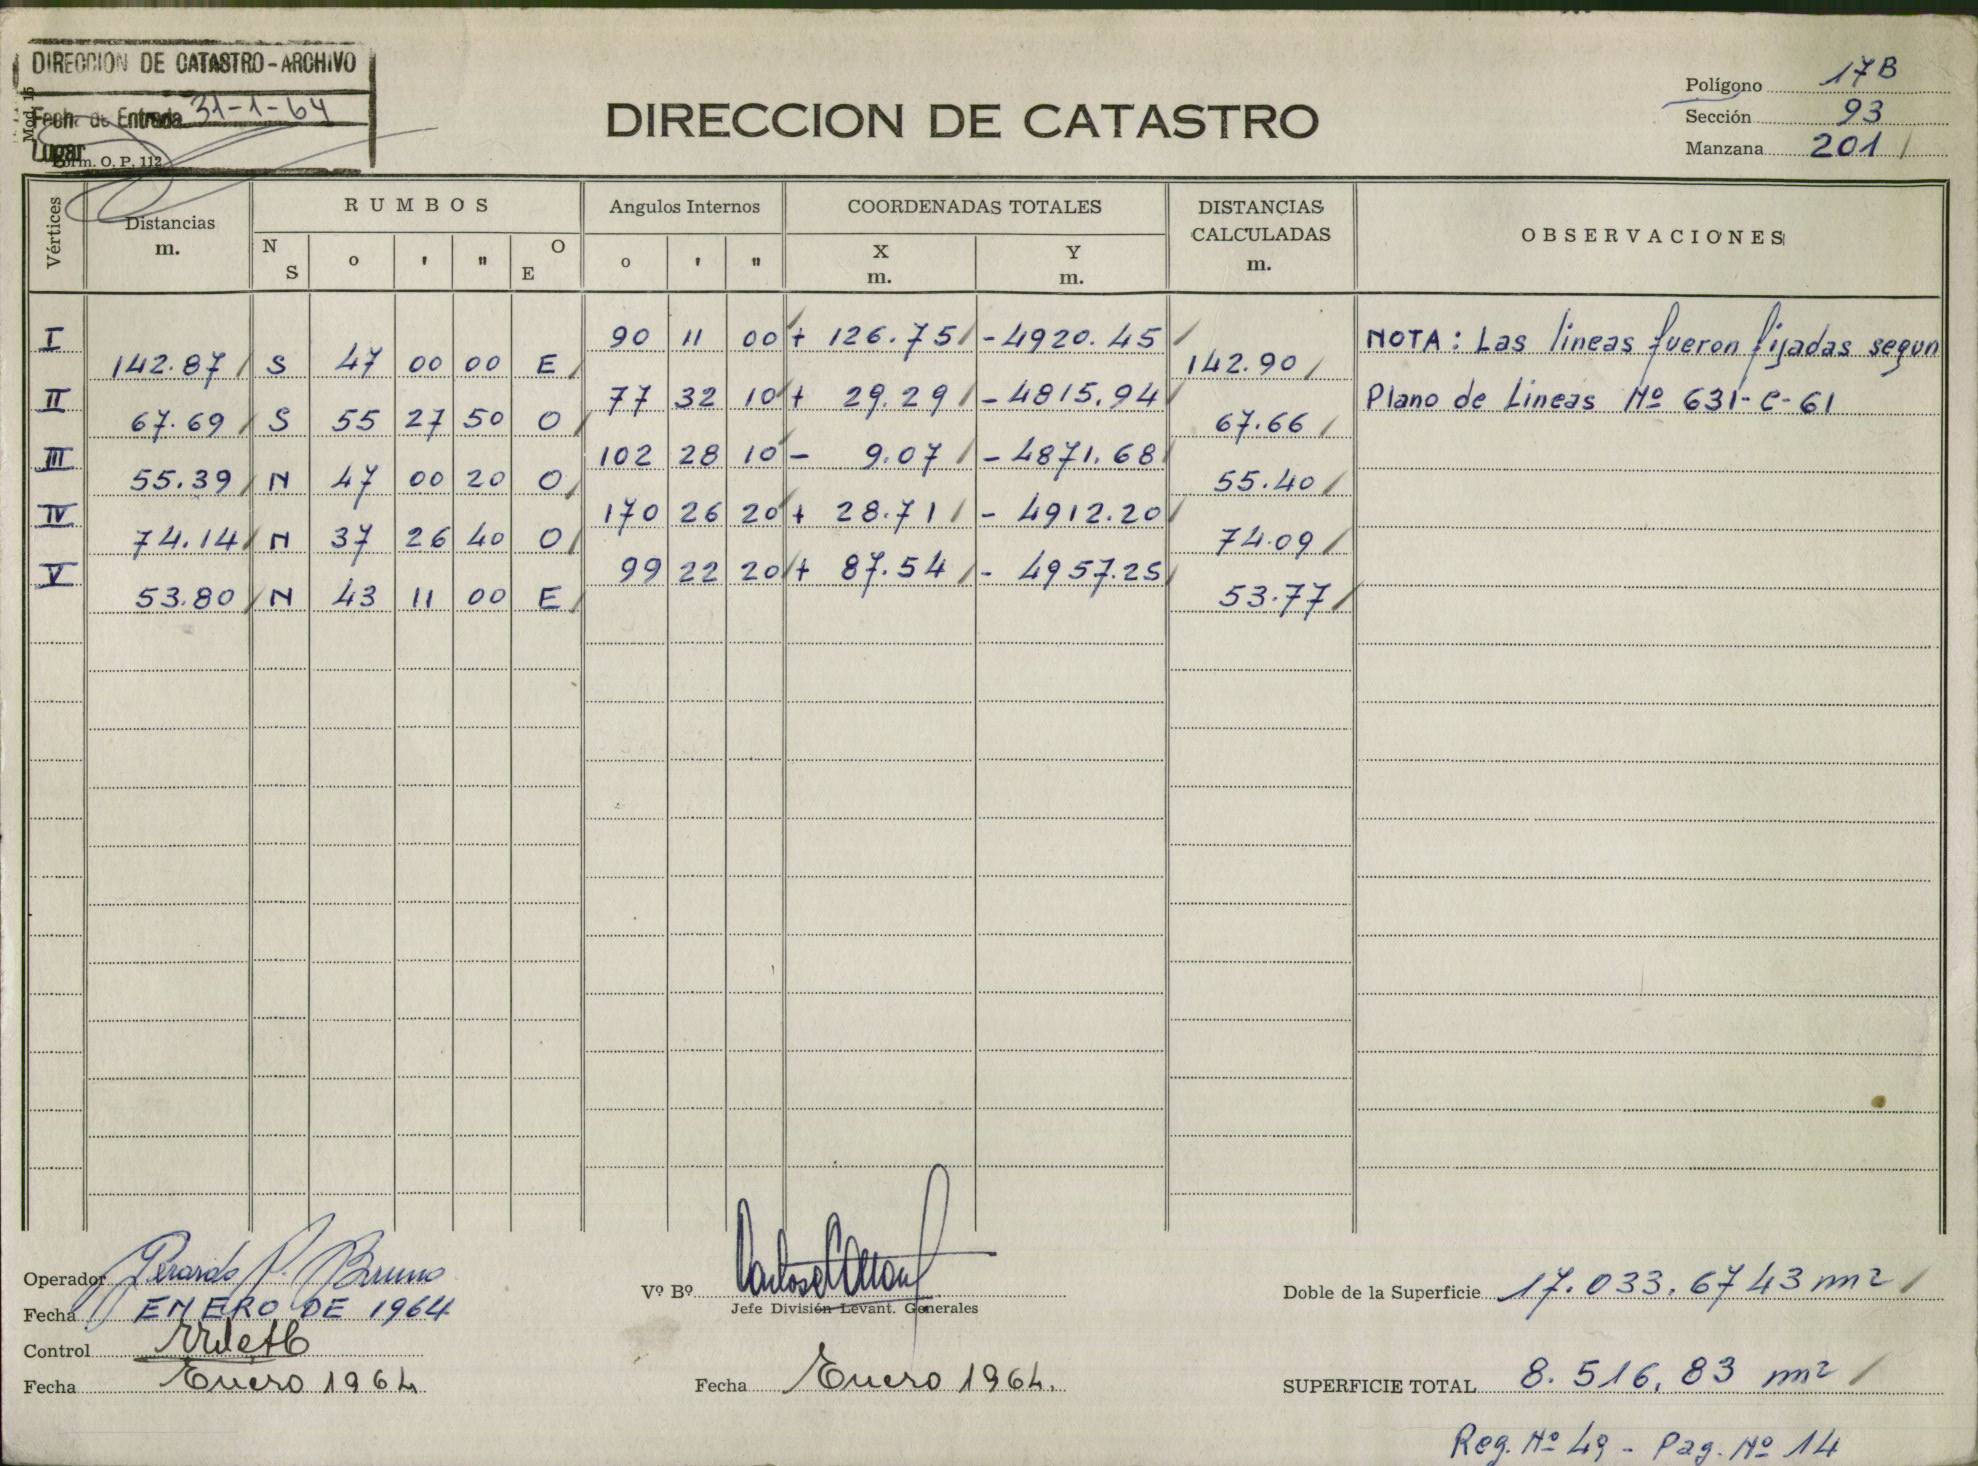 DIRECCION DE CATASTRO - ARCHIVO
Fecha de Entrada 31-1-64
Lugar
Mod. 15
Form. O. P. 112
DIRECCION DE CATASTRO
Polígono 17B
Sección 93
Manzana 201
Vértices
Distancias m.
RUMBOS
N S o ' " O E
Angulos Internos
o ' "
COORDENADAS TOTALES
X m. Y m.
DISTANCIAS CALCULADAS m.
OBSERVACIONES
I 90 11 00 + 126.75 - 4920.45
142.87 S 47 00 00 E 142.90
II 77 32 10 + 29.29 - 4815.94
67.69 S 55 27 50 O 67.66
III 102 28 10 - 9.07 - 4871.68
55.39 N 47 00 20 O 55.40
IV 170 26 20 + 28.71 - 4912.20
74.14 N 37 26 40 O 74.09
V 99 22 20 + 87.54 - 4957.25
53.80 N 43 11 00 E 53.77
NOTA: Las lineas fueron fijadas segun
Plano de Lineas Nº 631-C-61
Operador Gerardo P. Bruno
Fecha ENERO DE 1964
Control
Fecha Enero 1964
Vº Bº
Jefe División Levant. Generales
Fecha Enero 1964.
Doble de la Superficie 17.033,6743 m2
SUPERFICIE TOTAL 8.516,83 m2
Reg. Nº 49 - Pag. Nº 14